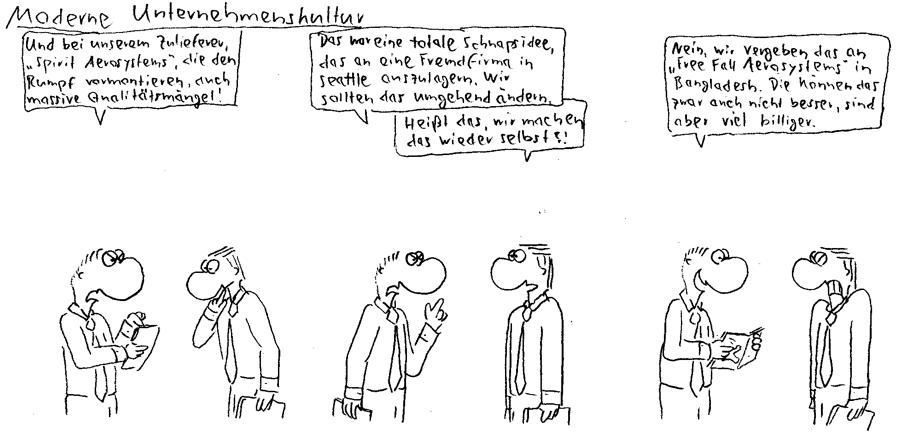 Moderne Unternehmenskultur
Und bei unserem Zulieferer,
„Spirit Aerosystems", die den
Rumpf vormontieren, auch
massive Qualitätsmängel!
Das war eine totale Schnapsidee,
das an eine Fremdfirma in
Seattle auszulagern. Wir
sollten das umgehend ändern.
Heißt das, wir machen
das wieder selbst?!
Nein, wir vergeben das an
„Free Fall Aerosystems" in
Bangladesh. Die können das
zwar auch nicht besser, sind
aber viel billiger.